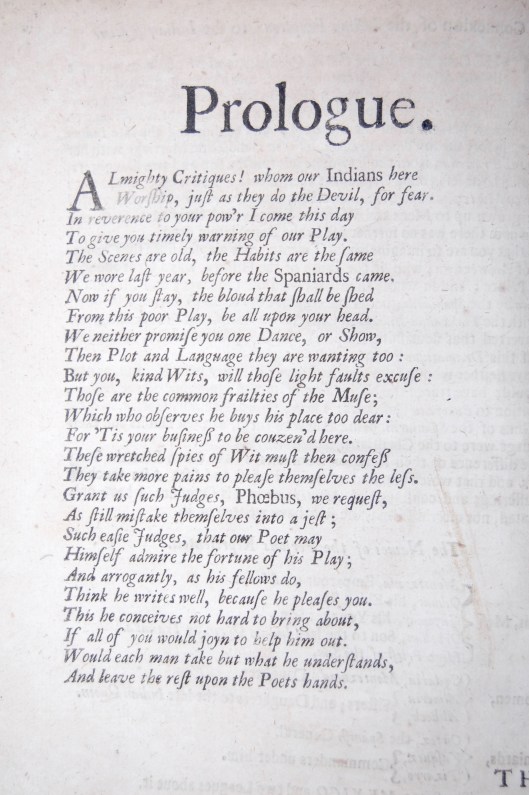 Prologue.
ALmighty Critiques! whom our Indians here
Worſhip, juſt as they do the Devil, for fear.
In reverence to your pow'r I come this day
To give you timely warning of our Play.
The Scenes are old, the Habits are the ſame
We wore laſt year, before the Spaniards came.
Now if you ſtay, the bloud that ſhall be ſhed
From this poor Play, be all upon your head.
We neither promiſe you one Dance, or Show,
Then Plot and Language they are wanting too:
But you, kind Wits, will thoſe light faults excuſe:
Thoſe are the common frailties of the Muſe;
Which who obſerves he buys his place too dear:
For 'Tis your buſineß to be couzen'd here.
Theſe wretched ſpies of Wit muſt then confeß
They take more pains to pleaſe themſelves the leſs.
Grant us ſuch Judges, Phœbus, we requeſt,
As ſtill miſtake themſelves into a jeſt;
Such eaſie Judges, that our Poet may
Himſelf admire the fortune of his Play;
And arrogantly, as his fellows do,
Think he writes well, becauſe he pleaſes you.
This he conceives not hard to bring about,
If all of you would joyn to help him out.
Would each man take but what he underſtands,
And leave the reſt upon the Poets hands.
TH